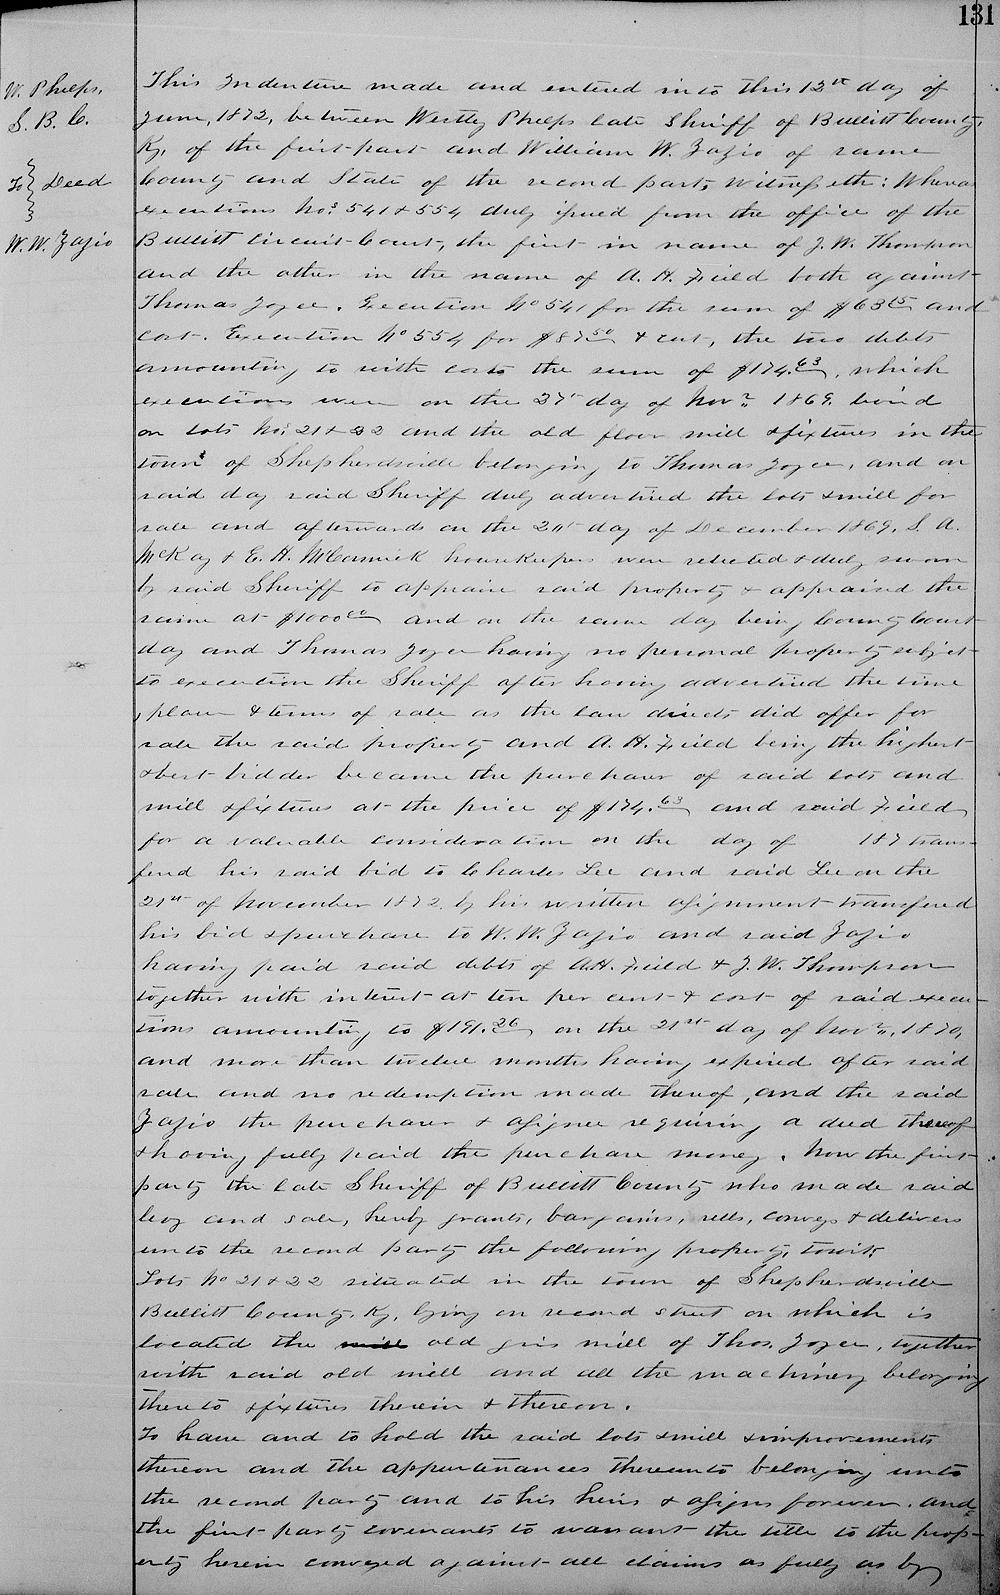 131
W. Phelps,
S. B. C.
To } Deed
W. W. Fazio
This Indenture made and entered into this 12th day of
June, 1872, between Westley Phelps late Sheriff of Bullitt County,
Ky, of the first part and William W. Fazio of same
County and State of the second part, Witnesseth: Whereas
executions Nos. 541 & 554 duly issued from the office of the
Bullitt Circuit Court, the first in name of J. W. Thompson
and the other in the name of A. H. Field both against
Thomas Joyce. Execution No 541 for the sum of $63 and
cost. Execution No 554 for $87 50 & cost, the two debts
amounting to with costs the sum of $174.63, which
executions were on the day of Novr. 1869. levied
on lots Nos. 21 & 22 and the old flour mill & fixtures in the
town of Shepherdsville belonging to Thomas Joyce, and on
said day said Sheriff duly advertised the lots & mill for
sale and afterwards on the day of December 1869, S. A.
McKay & E. H. McCormick housekeepers were selected & duly sworn
by said Sheriff to appraise said property & appraised the
same at $1000 00 and on the same day being County Court
day and Thomas Joyce having no personal property subject
to execution the Sheriff after having advertised the time
, place & terms of sale as the law directs did offer for
sale the said property and A. H. Field being the highest
& best bidder became the purchaser of said lots and
mill & fixtures at the price of $174.63 and said Field
for a valuable consideration on the day of 187 trans-
fered his said bid to Charles Lee and said Lee on the
21st of November 1872 by his written assignment transfered
his bid & purchase to W. W. Fazio and said Fazio
having paid said debts of A. H. Field & J. W. Thompson
together with interest at ten per cent & cost of said execu-
tions amounting to $191.26 on the 21st day of Novr., 1870,
and more than twelve months having expired after said
sale and no redemption made thereof, and the said
Fazio the purchaser & assignee requiring a deed thereof
& having fully paid the purchase money. Now the first
party the late Sheriff of Bullitt County who made said
levy and sale, hereby grants, bargains, sells, conveys & delivers
unto the second party the following property, towit:
Lots No 21 & 22 situated in the town of Shepherdsville
Bullitt County, Ky, lying on second street on which is
located the old mill of Thos. Joyce, together
with said old mill and all the machinery belonging
thereto & fixtures therein & thereon.
To have and to hold the said lots & mill & improvements
thereon and the appurtenances thereunto belonging unto
the second party and to his heirs & assigns forever. and
the first party covenants to warrant the title to the prop-
erty herein conveyed against all claims as fully as by